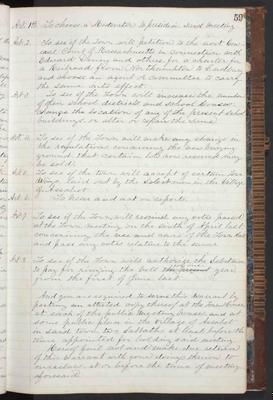 59
Art. 1st. To choose a Moderator to preside in said meeting
Art. 2. To see if the Town will petition to the next Gen-
eral Court of Massachusetts in connection with
Edward and others, for a charter for
a Railroad from to
and choose an agent or Committee to carry
the same into effect
Art. 3. To see if the Town will increase the number
of their school districts and school houses
change the location of any of the present school
buildings or alter or repair the same.
Art. 4. To see if the Town will make any change in
the regulations concerning the new burying
ground that certain lots now reserved may
be sold.
Art. 5. To see if the town will accept of certain Town
Ways laid out by the Selectmen in the village
of Assabet
Art. 6. To hear and act on reports.
Art. 7. To see if the Town will rescind any votes passed
at the Town meeting on the sixth of April last
concerning the use and care of the Town Hall
and pass any votes relative to the same
Art. 8. To see if the Town will authorize the Selectmen
to pay for ringing the bell the year
from the first of June last
And you are required to serve this Warrant by
posting an attested copy thereof at the Town House
at each of the public Meeting houses and at
some public place in the village of Assabet
in said town two Sabbaths at least before the
time appointed for holding said meeting
Hereof fail not and make due return
of this Warrant with your doings thereon to
ourselves at or before the time of meeting
aforesaid